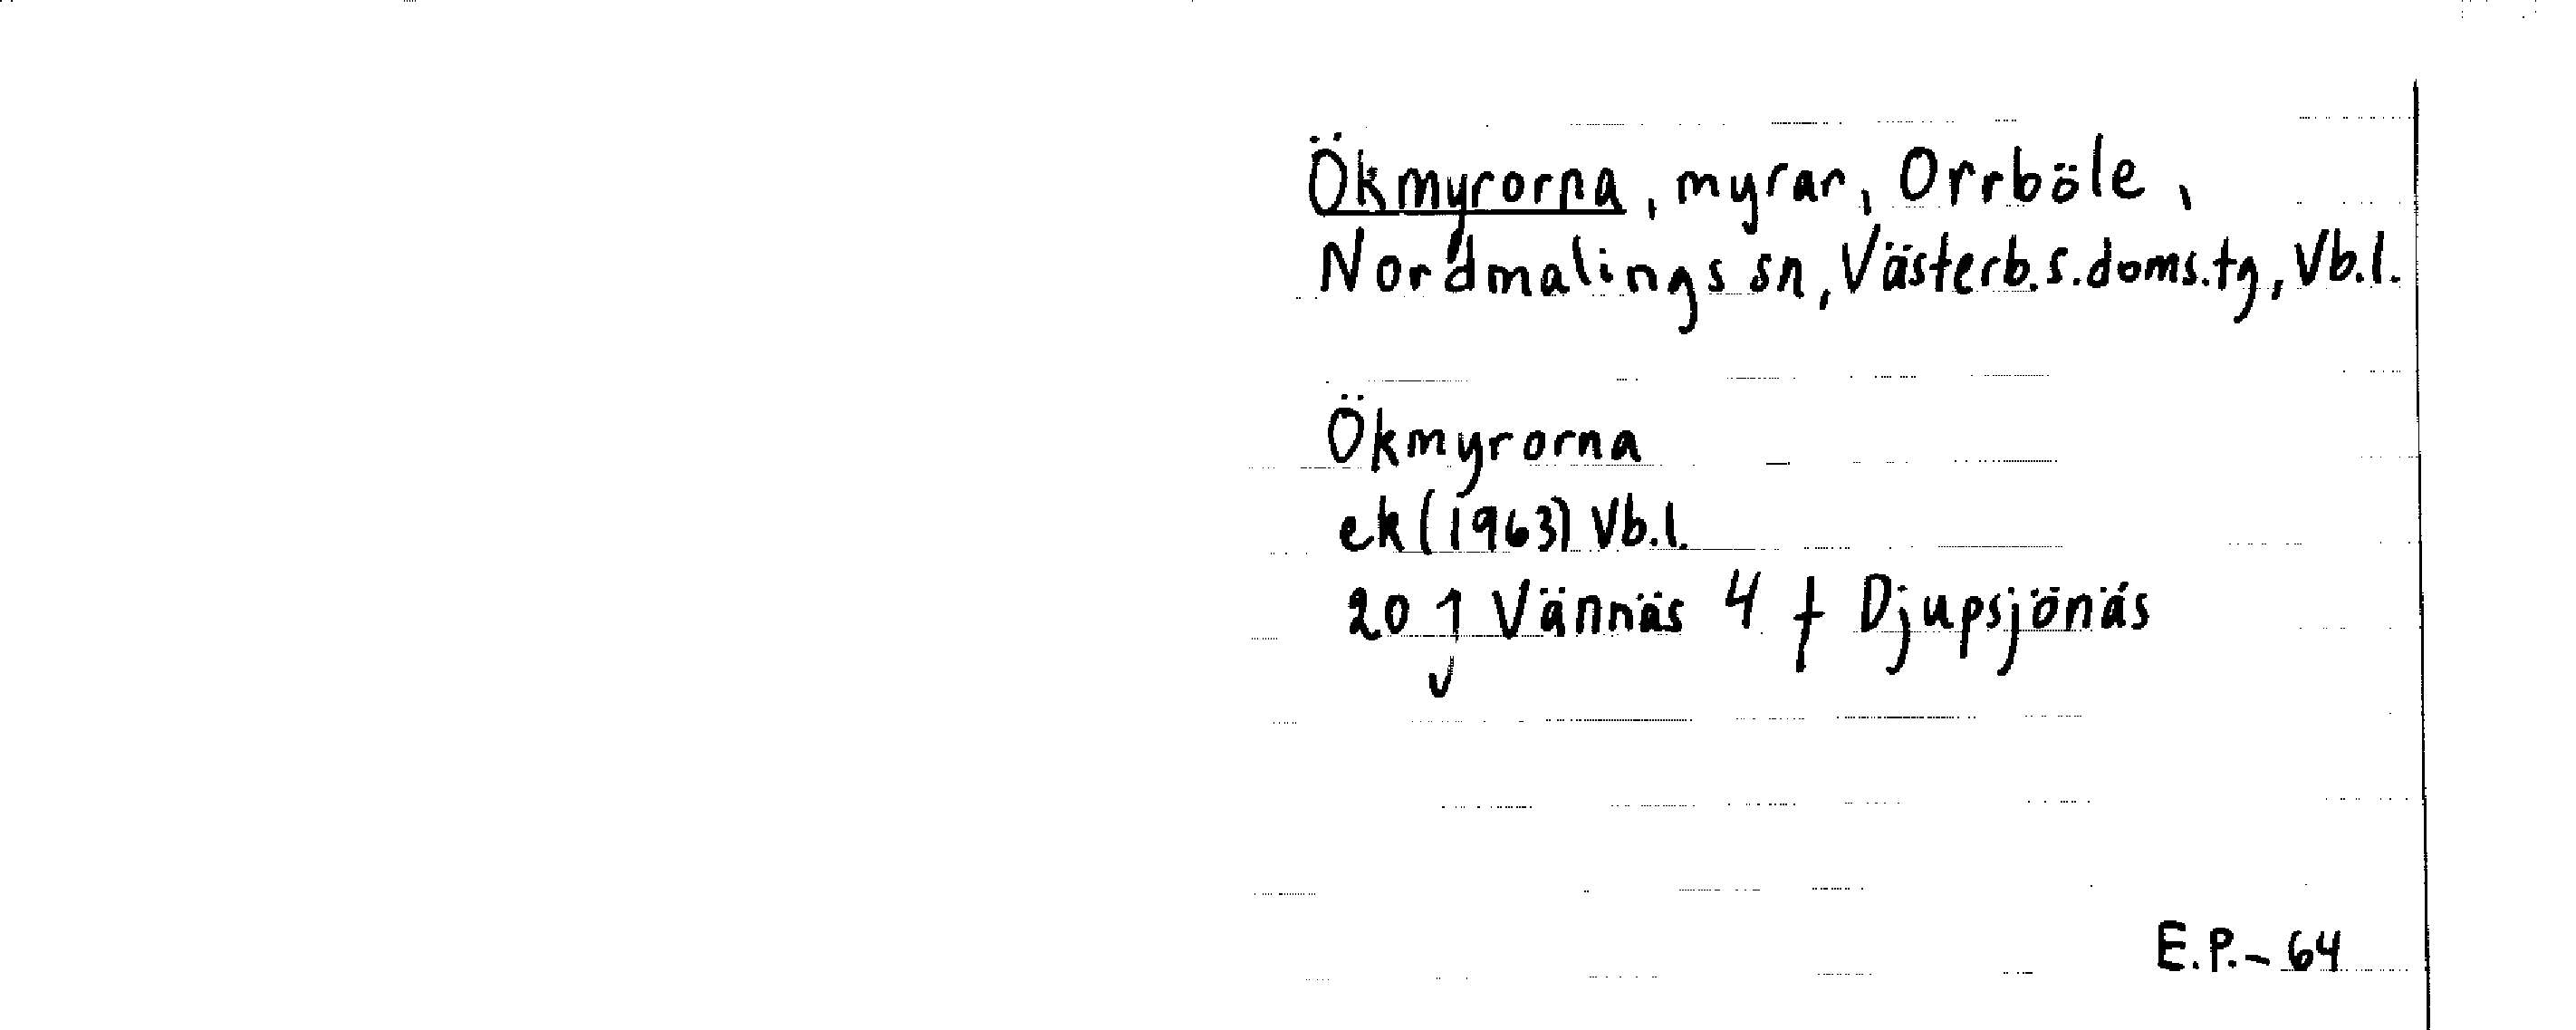 Ökmyrorna, myrar, Orrböle,
Nordmalings sn, Västerb.s.doms.tg, Vb.l.
Ökmyrorna
ek (1963) Vb.l.
20 J Vännäs 4 f Djupsjönäs
E.P.-64